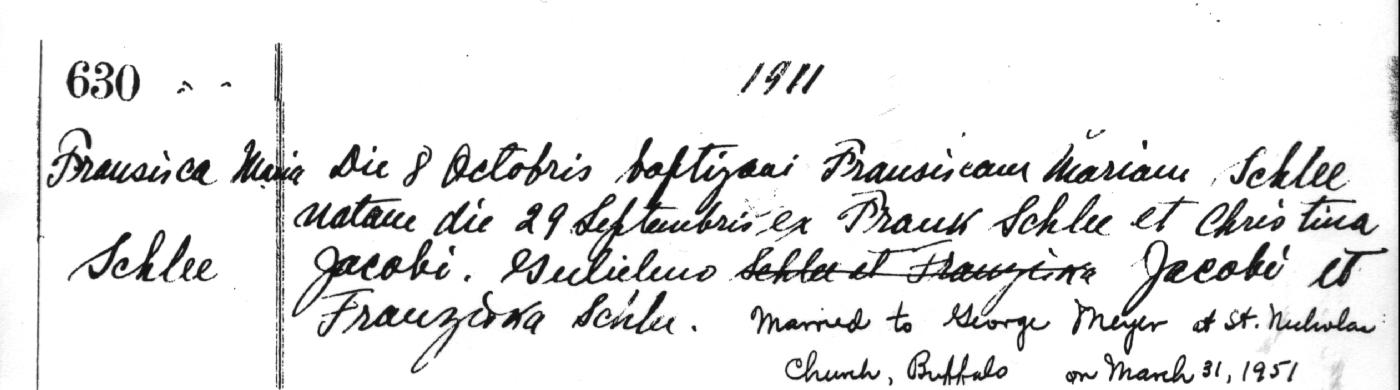 630 " "
1911
Fransisca Maria Die 8 Octobris baptizavi Fransiscam Mariam Schlee
natam die 29 Septembris ex Frank Schlee et Christina
Schlee Jacobi. Gulielmo Schlee et Franziska Jacobi et
Franziska Schlee. Married to George Meyer at St. Nicholas
Church, Buffalo on March 31, 1951